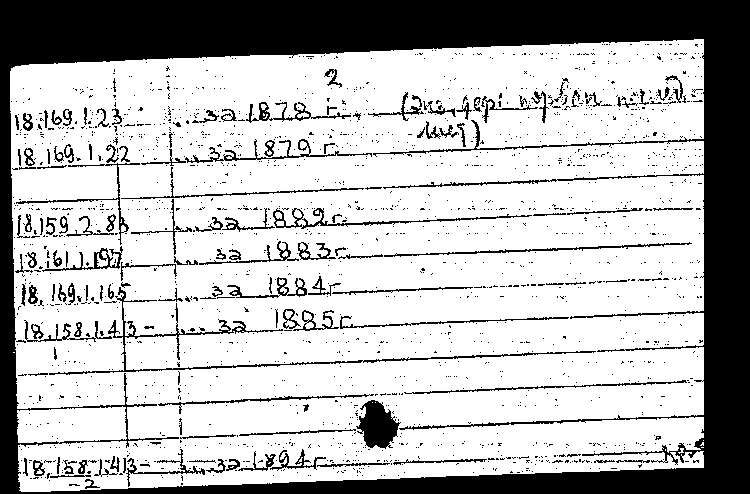 2
18.169.1.23 ... за 1878 г. (Экз. деф: первый и
лист).
18.169.1.22 ... за 1879 г.
18.159.2.83 ... за 1882 г.
18.161.1.197. ... за 1883 г.
18.169.1.165 ... за 1884 г
18.158.1.413- ... за 1885 г.
1
18.158.1.413- ... за 1894 г
-2